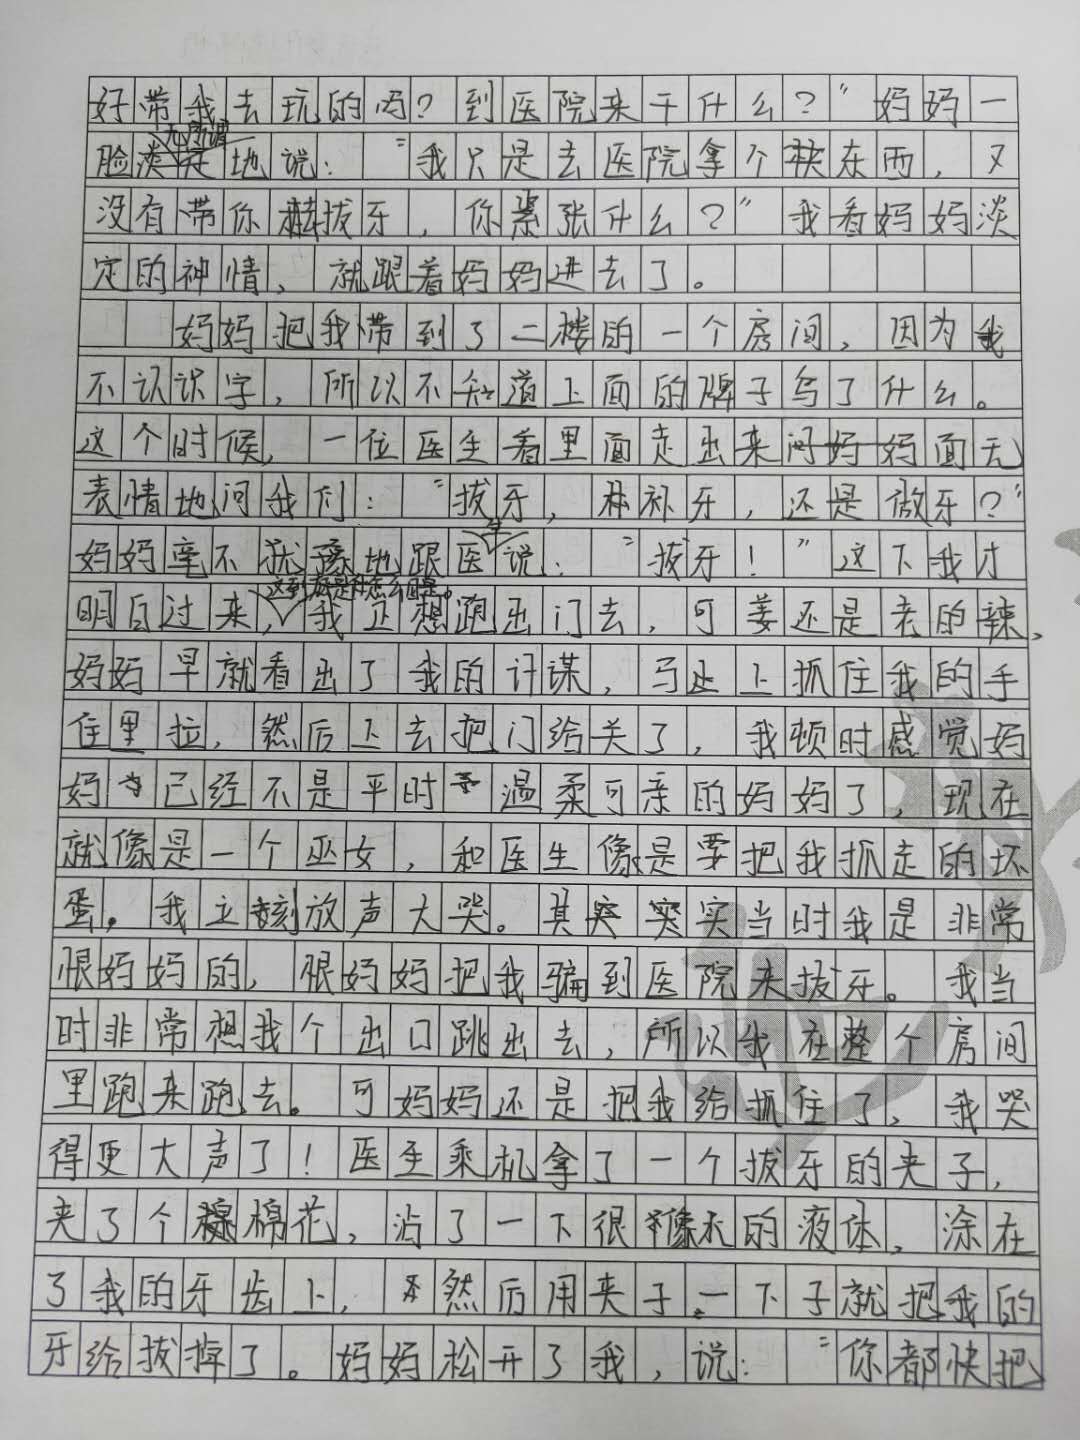 好带我去玩的吗？到医院来干什么？”妈妈一
脸无所谓地说：“我只是去医院拿个东西，又
没有带你拔牙，你紧张什么？”我看妈妈淡
定的神情，就跟着妈妈进去了。
妈妈把我带到了二楼的一个房间，因为我
不认识字，所以不知道上面的牌子写了什么。
这个时候，一位医生着里面走出来面无
表情地问我们：“拔牙，补牙，还是做牙？”
妈妈毫不犹豫地跟医生说：“拔牙！”这下我才
明白过来，这到底是什么回事。我正想跑出门去，可姜还是老的辣，
妈妈早就看出了我的计谋，马上抓住我的手
住里拉，然后上去把门给关了，我顿时感觉妈
妈已经不是平时温柔可亲的妈妈了，现在
就像是一个巫女，和医生像是要把我抓走的坏
蛋。我立刻放声大哭。其实当时我是非常
恨妈妈的，恨妈妈把我骗到医院来拔牙。我当
时非常想找个出口跳出去，所以我在整个房间
里跑来跑去。可妈妈还是把我给抓住了，我哭
得更大声了！医生乘机拿了一个拔牙的夹子，
夹了个棉花，沾了一下很像水的液体，涂在
了我的牙齿上，然后用夹子一下子就把我的
牙给拔掉了。妈妈松开了我，说：“你都快把